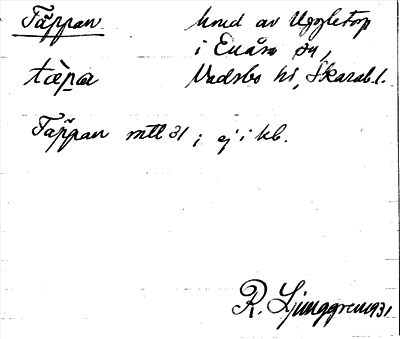 Täppan hmd av Uggletorp
i Enåsa sn,
tàpa Vadsbo hd, Skarab.l.
Täppan mtl 31; ej i kb.
R. Ljunggren 1931